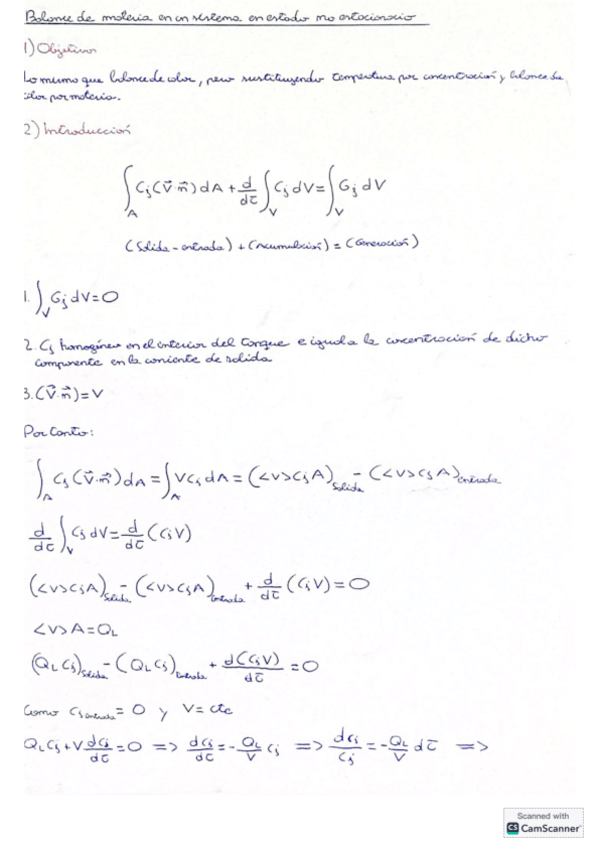 Balance de materia en un sistema en estado no estacionario
1) Objetivos
Lo mismo que balance de calor, pero sustituyendo temperatura por concentración y balance de
calor por materia.
2) Introducción
∫_A Cj(v⃗·n⃗)dA + d/dτ ∫_V Cj dV = ∫_V Gj dV
(Salida - entrada) + (Acumulación) = (Generación)
1. ∫_V Gj dV = 0
2. Cj homogénea en el interior del tanque e iguala la concentración de dicho
componente en la corriente de salida
3. (v⃗·n⃗) = v
Por tanto:
∫_A Cj(v⃗·n⃗)dA = ∫_A v Cj dA = (<v>CjA)Salida - (<v>CjA)entrada
d/dτ ∫_V Cj dV = d/dτ (CjV)
(<v>CjA)Salida - (<v>CjA)entrada + d/dτ (CjV) = 0
<v>A = QL
(QL Cj)Salida - (QL Cj)entrada + d(CjV)/dτ = 0
Como Cj entrada = 0 y V = cte
QL Cj + V dCj/dτ = 0 => dCj/dτ = - QL/V Cj => dCj/Cj = - QL/V dτ =>
Scanned with
CS CamScanner